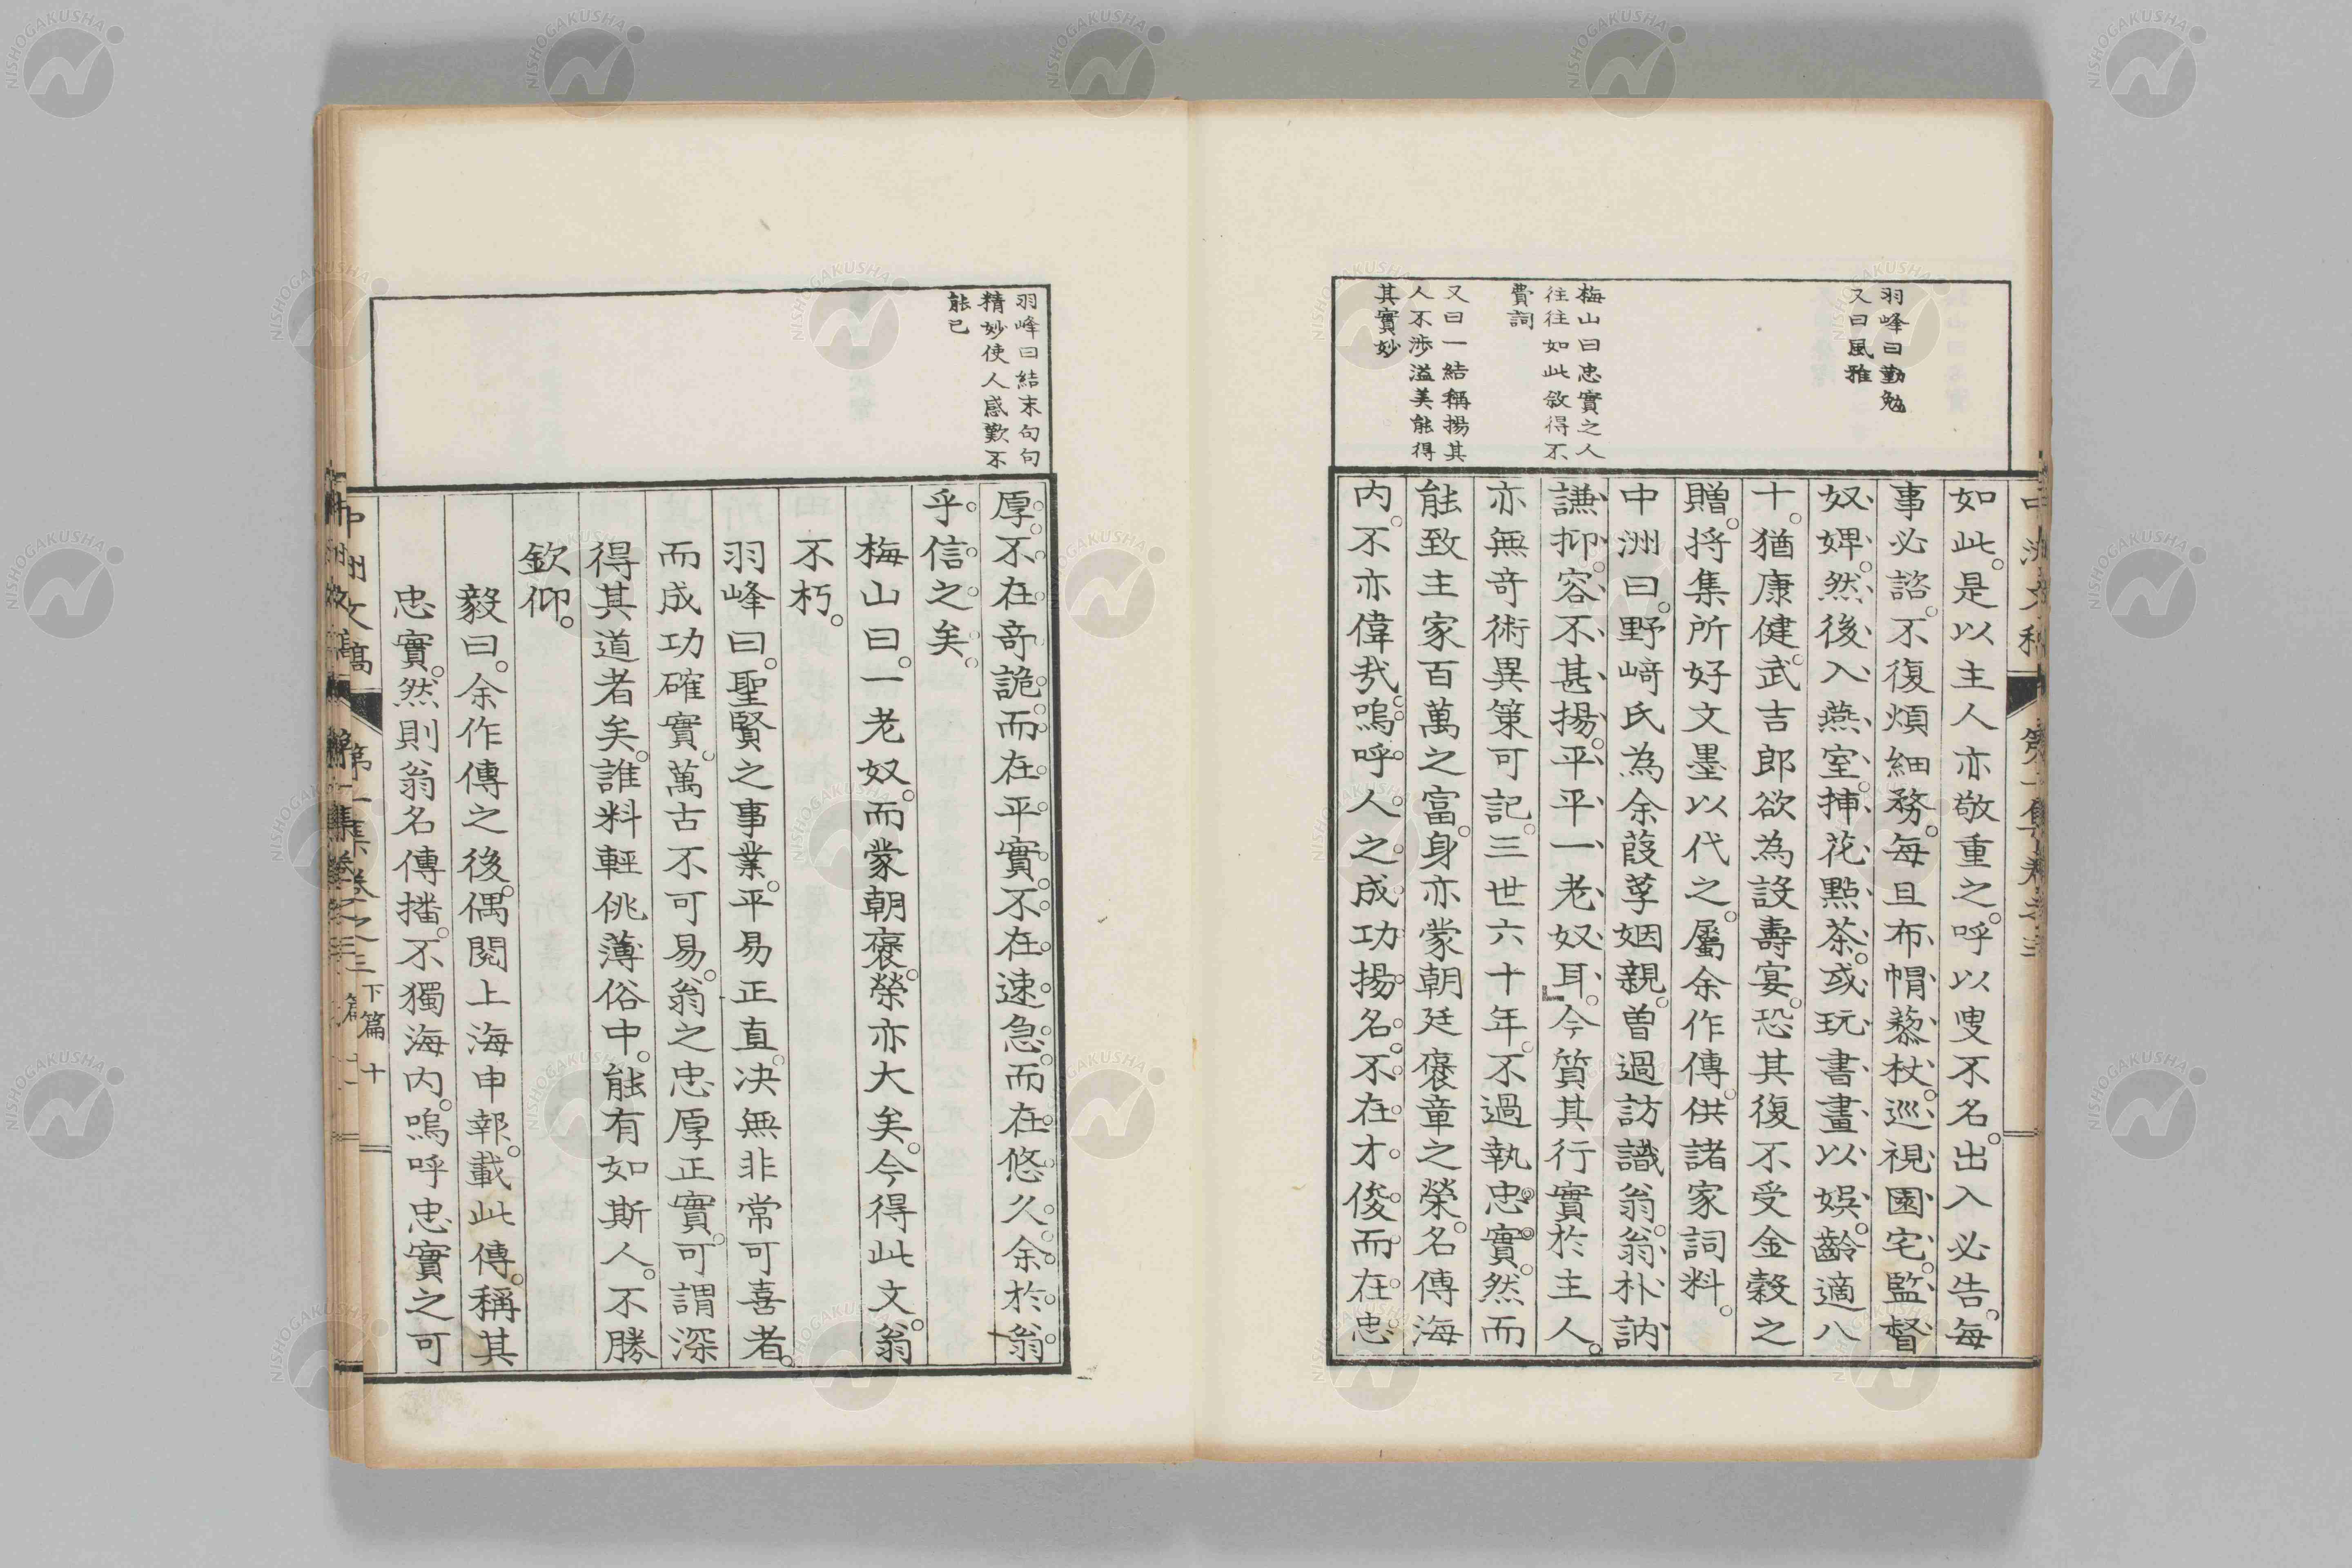 羽峰曰勤勉
又曰風雅
梅山曰忠實之人
往往如此敘得不
費詞
又曰一結稱揚其
人不涉溢美能得
其實妙
如此。是以主人亦敬重之。呼以叟不名。出入必告。每
事必諮。不復煩細務。每旦布帽藜杖。巡視園宅。監督
奴婢。然後入燕室。挿花點茶。或玩書畫以娛。齡適八
十。猶康健。武吉郎欲為設壽宴。恐其復不受金穀之
贈。將集所好文墨以代之。屬余作傳。供諸家詞料。
中洲曰。野﨑氏為余葭莩姻親。曽過訪識翁。翁朴訥
謙抑。容不甚揚。平平一老奴耳。今質其行實於主人。
亦無奇術異策可記。三世六十年。不過執忠實。然而
能致主家百萬之富。身亦蒙朝廷褒章之榮。名傳海
内。不亦偉哉。嗚呼人之成功揚名。不在才俊而在忠
羽峰曰結末句句
精妙使人感歎不
能已
厚。不在奇詭。而在平實。不在速急。而在悠久。余於翁
乎信之矣。
梅山曰。一老奴。而蒙朝褒。榮亦大矣。今得此文。翁
不朽。
羽峰曰。聖賢之事業。平易正直。决無非常可喜者。
而成功確實。萬古不可易。翁之忠厚正實。可謂深
得其道者矣。誰料輕佻薄俗中。能有如斯人。不勝
欽仰。
毅曰。余作傳之後。偶閱上海申報。載此傳。稱其
忠實。然則翁名傳播。不獨海内。嗚呼忠實之可
中洲文稿
第二集卷之三下篇
十